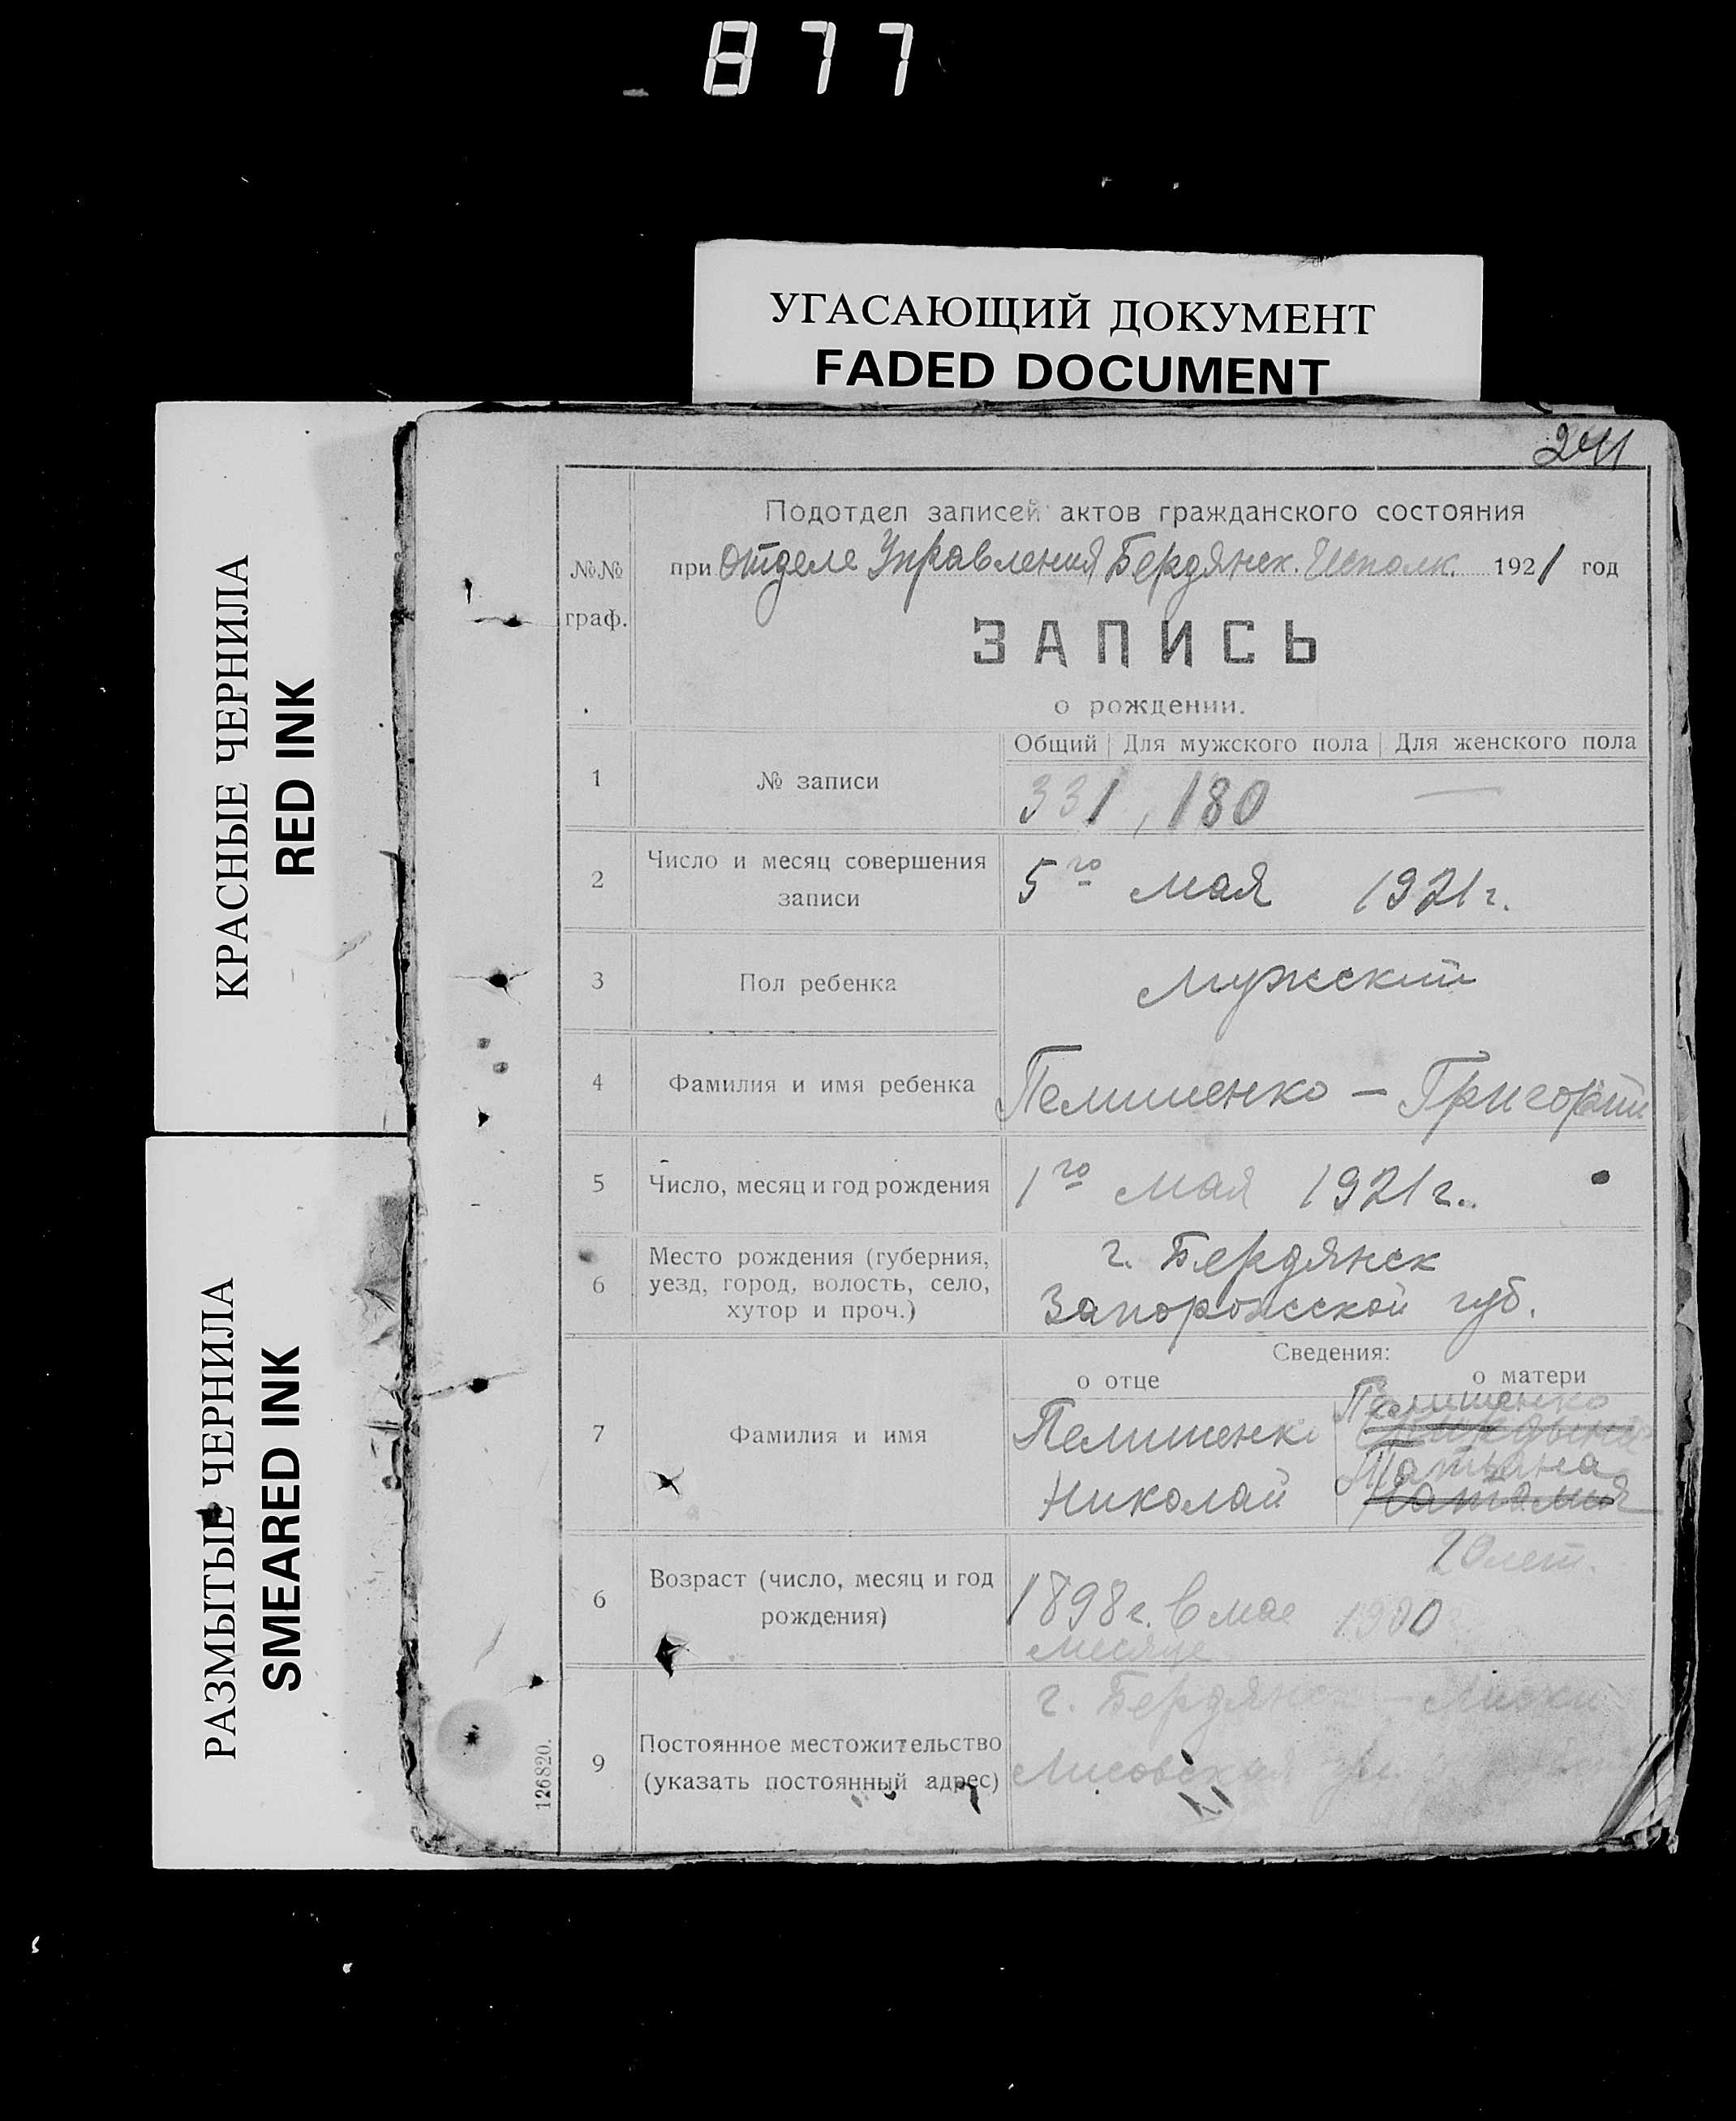 877
УГАСАЮЩИЙ ДОКУМЕНТ
FADED DOCUMENT
КРАСНЫЕ ЧЕРНИЛА
RED INK
РАЗМЫТЫЕ ЧЕРНИЛА
SMEARED INK
241
Подотдел записей актов гражданского состояния
№№ граф.
при Отделе Управления Бердянск. Исполк. 1921 год
ЗАПИСЬ
о рождении.
Общий Для мужского пола Для женского пола
1 № записи 331, 180 —
2 Число и месяц совершения записи 5го мая 1921 г.
3 Пол ребенка мужский
4 Фамилия и имя ребенка Пелишенко – Григорий
5 Число, месяц и год рождения 1го мая 1921 г.
6 Место рождения (губерния, уезд, город, волость, село, хутор и проч.) г. Бердянск
Запорожской губ.
Сведения:
о отце о матери
7 Фамилия и имя Пелишенко Пелишенко
Николай Татьяна
Наталия
20 лет.
6 Возраст (число, месяц и год рождения) 1898 г. в мае 1900
месяце
г. Бердянск – Лиски
9 Постоянное местожительство (указать постоянный адрес) Лисовская ул.
126820.